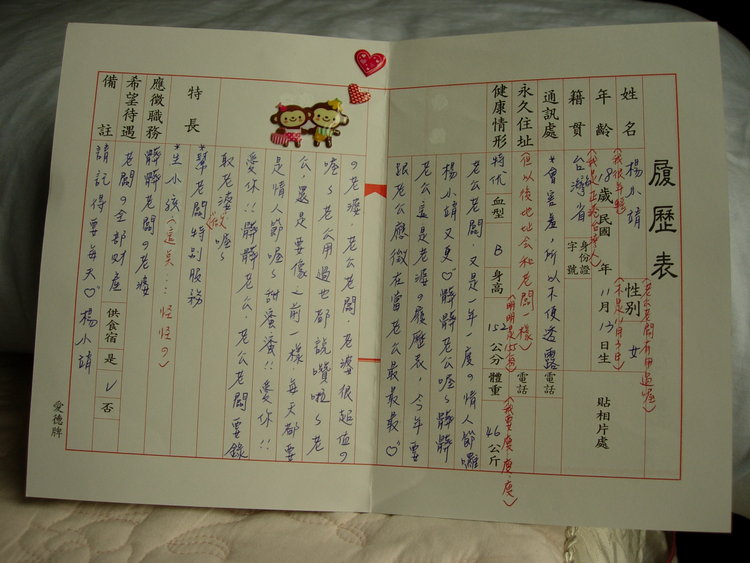 履歷表
姓名 楊小靖 性別 女
(我很年輕) (老公老闆有用過喔)
年齡 18歲 民國 年 11月13日生
(不是11月3日)
籍貫 台灣省 身份證字號
貼相片處
通訊處 *會害羞,所以不便透露 電話
永久住址 但以後地址會和老闆一樣 電話
健康情形 特优 血型 B 身高 152公分 體重 46公斤
(我要瘦,瘦,瘦)
老公老闆 又是一年一度の情人節囉
楊小靖又更♡髒髒老公喔~髒髒
老公這是老婆の履歷表,今年要
跟老公應徵在當老公最最最♡
の老婆.老公老闆.老婆很超值の
喔~老公用過也都說讚啦~老
公,還是要像之前一樣 每天都要
是情人節喔~甜蜜蜜!!愛你!!
愛你!!髒髒老公.老公老闆要錄
取老婆喔~
特長 *幫老闆特別服務
*生小孩(這吴...怪怪の)
應徵職務 髒髒老闆の老婆
希望待遇 老闆の全部財產 供食宿 是 V 否
備註 請記得要每天♡楊小靖
愛德牌